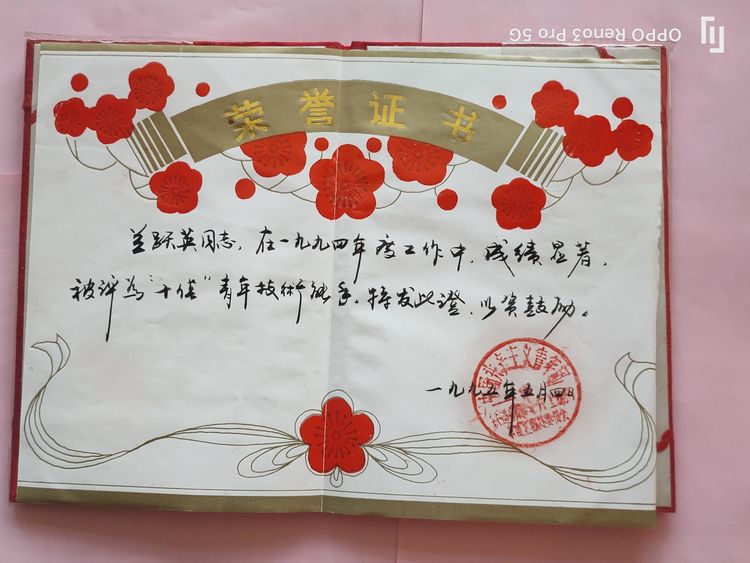 荣誉证书
兰跃英同志，在一九九四年度工作中，成绩显著，
被评为“十佳”青年技术能手，特发此證，以资鼓励。
一九九五年五月四日
中国共产主义青年团
OPPO Reno3 Pro 5G